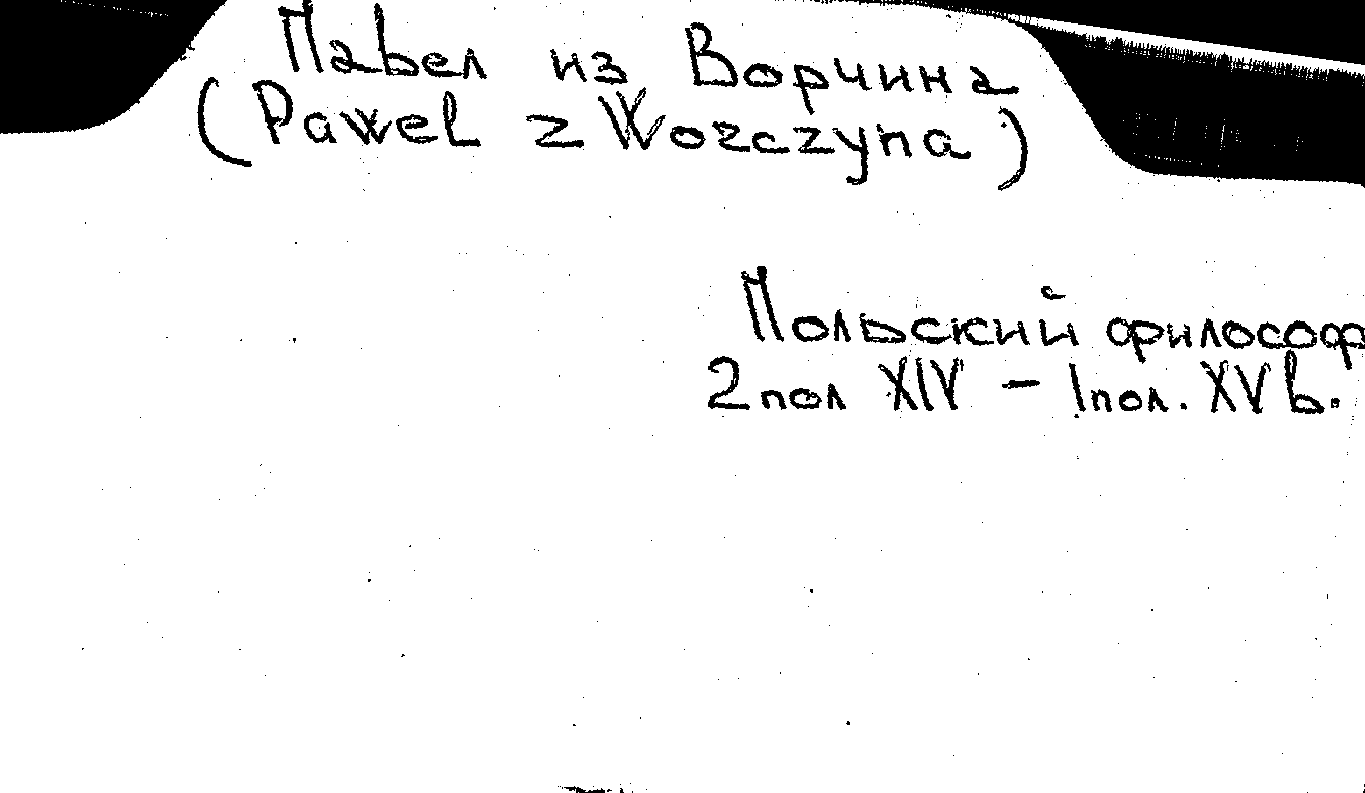 Павел из Ворчина
(Paweł z Worczyna)
Польский философ
2 пол XIV – 1 пол. XV в.